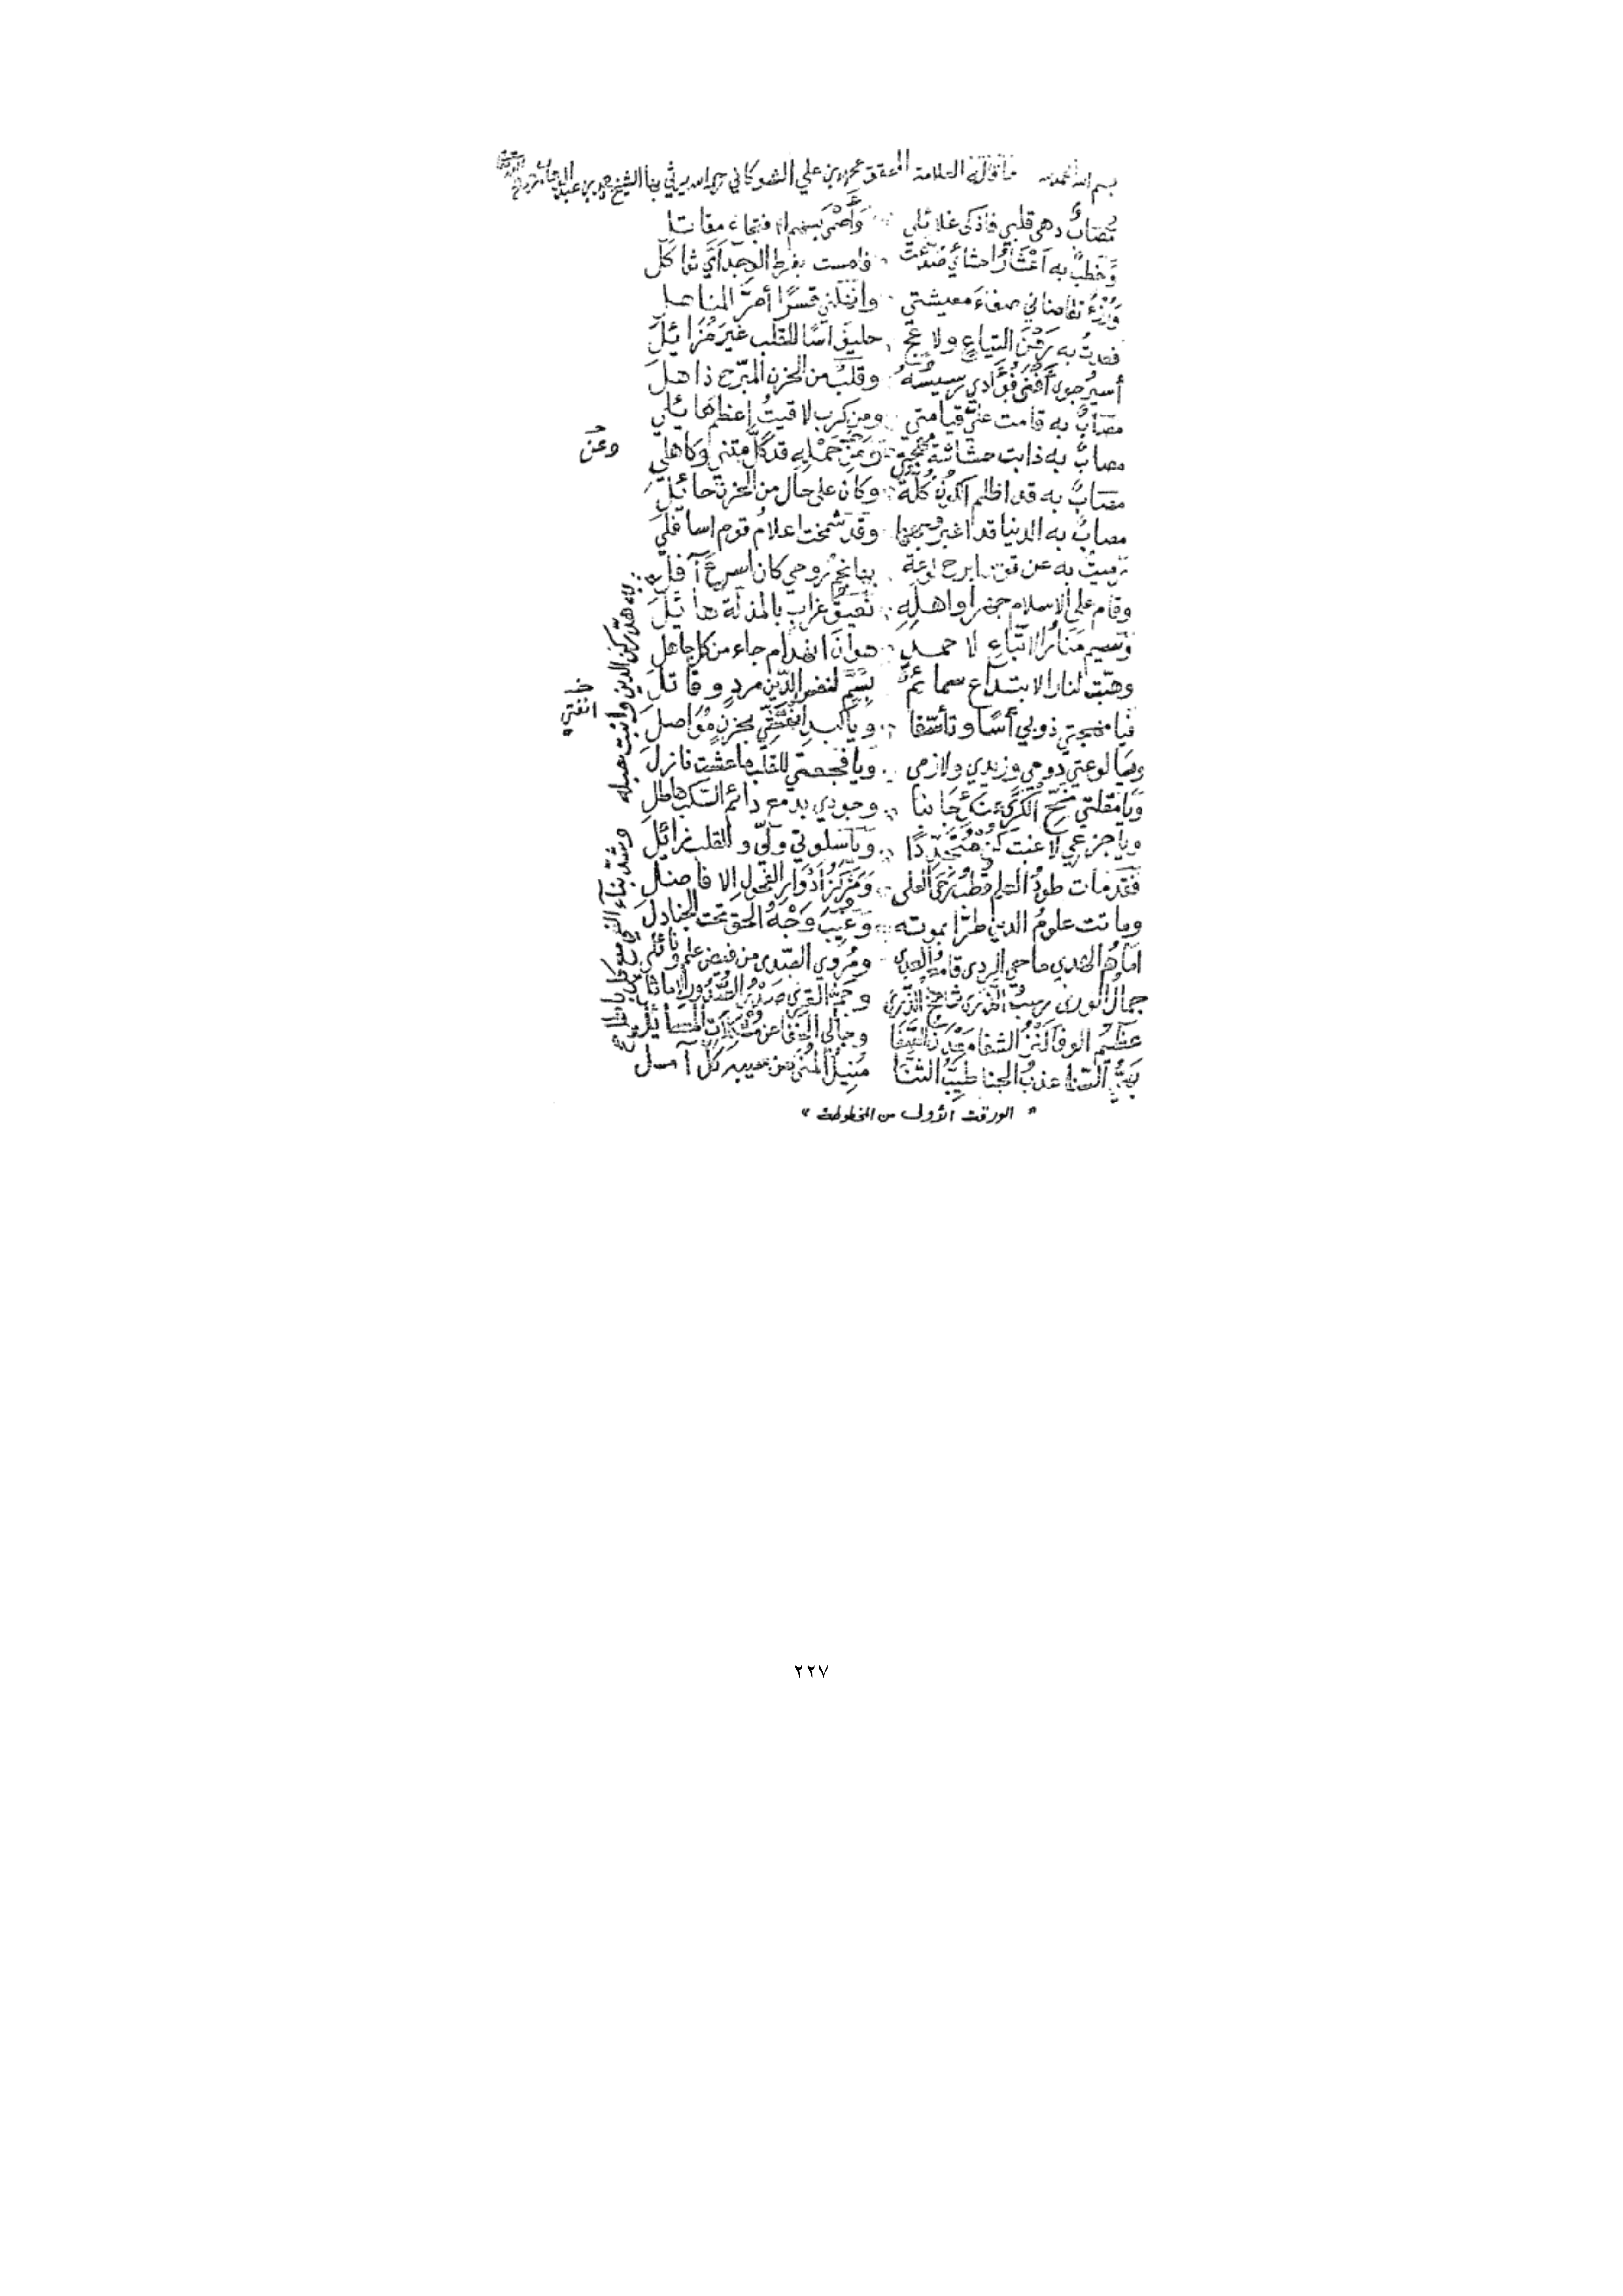 بسم الله الحمد لله مما قاله العلامة المحقق محمد بن علي الشوكاني رحمه الله يرثي بها الشيخ محمد بن عبد الوهاب
مصاب دهى قلبي فأذكى غلائلي وأصمى بسهم الافتجاء مقاتلي
وخطب به أعشار أحشائي صدعت فامست بفرط الوجد أي ثواكل
ورزء تقاضاني صفاء معيشتي وانهلني قسرا أمر المناهل
فعدت به رهن التياع ولاعج حليف اسا للقلب غير مزايل
أسير جوى أفنى فؤادي رسيسه وقلب من الحزن المبرح ذاهل
مصاب به قامت علي قيامتي ومن كرب لاقيت أعظم هائل
مصاب به ذابت حشاشة مهجتي وعن حمله قد كل متني وكاهلي
وعن
مصاب به قد اظلم الكون كله وكان على حال من الحزن حائل
مصاب به الدنيا قد اغبر وجهها وقد شمخت اعلام قوم اسافل
رميت به عن قوس أبرح لوعة بها نجم روحي كان اسرع آفل
به هد ركن الدين وانبت حبله وشد بناء الغي مع كل باطل
وقام على الإسلام جهرا واهله نعيق غراب بالمذلة هائل
وسيم منار الاتباع لاحمد هوان انهدام جاء من كل جاهل
وهبت لنار الابتداع سمائم بسم لنفس الدين مرد وقاتل
فيا مهجتي ذوبي أسا وتأسفا ويا كبد انفتي بحزن مواصل
انفتي
ويا لوعتي دومي وزيدي ولازمي ويا فجعتي للقلب ما عشت نازل
ويا مقلتي نحي الكرى عنك جانبا وجودي بدمع دائم السكب هاطل
ويا جزعي لا غبت كن متجددا ويا سلوتي ولي وللقلب زائل
فقد مات طود العلم قطب رحى العلى ومركز أدوار الفحول الافاضل
وماتت علوم الدين طرا بموته وغيب وجه الحق تحت الجنادل
امام الهدى ماحي الردى قامع العدى ومروي الصدى من فيض علم ونائل
جمال الورى رحب الذرى شامخ الذرى
عظيم الوفا كنز الشفا معدن الصفا وجالي الخفا عن مشكلات المسائل
بهي السنا عذب الجنا طيب الثنا منيل المنى من سيبه كل آمل
« الورقة الأولى من المخطوطة »
٢٢٧